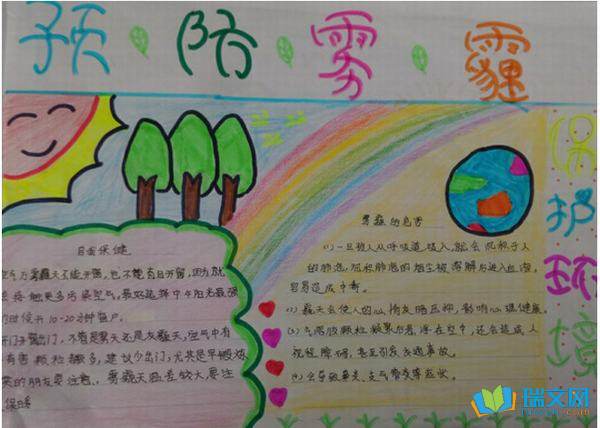 预防雾霾
保护环境
自我保健
空气为雾霾天不能开窗,也不能盲目开窗,因为就
更多污染空气,最好选择中午阳光最强
的时候开10-20分钟窗户。
开门少出门,不管是雾天还是灰霾天,空气中有
有害颗粒都多,建议少出门,尤其是早晚
的朋友要注意。雾霾天温差较大,要注
保暖
雾霾的危害
(1)一旦被人从呼吸道吸入,就会沉积于人
的肺泡,沉积肺泡的烟尘被溶解后进入血液,
容易造成中毒。
霾天会使人的心情灰暗压抑,影响心理健康。
气溶胶颗粒凝聚后者浮在空中,还会造成人
视程障碍,甚至引发交通事故。
会导致鼻炎、支气管炎等症状。
瑞文网